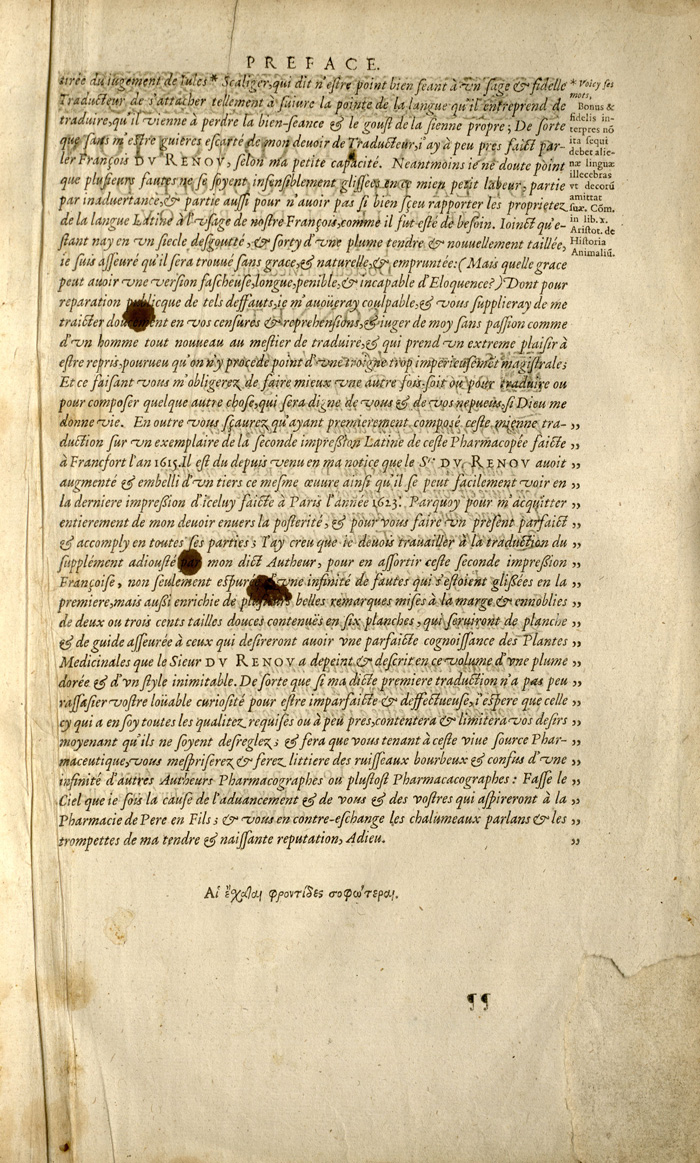 PREFACE.
tirée du iugement de Iules * Scaliger, qui dit n'estre point bien seant à vn sage & fidelle
Traducteur de s'attacher tellement à suiure la pointe de la langue qu'il entreprend de
traduire, qu'il vienne à perdre la bien-seance & le goust de la sienne propre; De sorte
que sans m'estre guieres escarté de mon deuoir de Traducteur, i'ay à peu pres faict par-
ler François DV RENOV, selon ma petite capacité. Neantmoins ie ne doute point
que plusieurs fautes ne se soyent insensiblement glissées en ce mien petit labeur, partie
par inaduertance, & partie aussi pour n'auoir pas si bien sçeu rapporter les proprietez
de la langue Latine à l'vsage de nostre François, comme il fut esté de besoin. Ioinct qu'e-
stant nay en vn siecle desgoutté, & sorty d'vne plume tendre & nouuellement taillée,
ie suis asseuré qu'il sera trouué sans grace, & naturelle, & empruntée: (Mais quelle grace
peut auoir vne version fascheuse, longue, penible, & incapable d'Eloquence?) Dont pour
reparation publicque de tels deffauts, ie m'auoüeray coulpable, & vous supplieray de me
traicter doucement en vos censures & reprehensions, & iuger de moy sans passion comme
d'vn homme tout nouueau au mestier de traduire, & qui prend vn extreme plaisir à
estre repris, pourueu qu'on n'y procede point d'vne troigne trop imperieusemẽt magistrale;
Et ce faisant vous m'obligerez de faire mieux vne autre fois, soit ou pour traduire ou
pour composer quelque autre chose, qui sera digne de vous & de vos nepueus, si Dieu me
donne vie. En outre vous sçaurez qu'ayant premierement composé ceste mienne tra- ,,
duction sur vn exemplaire de la seconde impression Latine de ceste Pharmacopée faicte ,,
à Francfort l'an 1615. Il est du depuis venu en ma notice que le Sr. DV RENOV auoit ,,
augmenté & embelli d'vn tiers ce mesme œuure ainsi qu'il se peut facilement voir en ,,
la derniere impression d'iceluy faicte à Paris l'année 1623. Parquoy pour m'acquitter ,,
entierement de mon deuoir enuers la posterité, & pour vous faire vn present parfaict ,,
& accomply en toutes ses parties; I'ay creu que ie deuois trauailler à la traduction du ,,
supplément adiousté par mon dict Autheur, pour en assortir ceste seconde impression ,,
Françoise, non seulement espurée d'vne infinité de fautes qui s'estoient glissées en la ,,
premiere, mais aussi enrichie de plusieurs belles remarques mises à la marge, & ennoblies ,,
de deux ou trois cents tailles douces contenuës en six planches, qui seruiront de planche ,,
& de guide asseurée à ceux qui desireront auoir vne parfaicte cognoissance des Plantes ,,
Medicinales que le Sieur DV RENOV a depeint & descrit en ce volume d'vne plume ,,
dorée & d'vn style inimitable. De sorte que si ma dicte premiere traduction n'a pas peu ,,
rassasier vostre loüable curiosité pour estre imparfaicte & deffectueuse, i'espere que celle ,,
cy qui a en soy toutes les qualitez requises ou à peu pres, contentera & limitera vos desirs ,,
moyenant qu'ils ne soyent desreglez; & fera que vous tenant à ceste viue source Phar- ,,
maceutique, vous mespriserez & ferez littiere des ruisseaux bourbeux & confus d'vne ,,
infinité d'autres Autheurs Pharmacographes ou plustost Pharmacacographes: Fasse le ,,
Ciel que ie sois la cause de l'aduancement & de vous & des vostres qui aspireront à la ,,
Pharmacie de Pere en Fils; & vous en contre-eschange les chalumeaux parlans & les ,,
trompettes de ma tendre & naissante reputation, Adieu. ,,
* Voicy ses
mots,
Bonus &
fidelis in-
terpres nõ
ita sequi
debet alie-
næ linguæ
illecebras
vt decorũ
amittat
suæ. Cõm.
in lib. x.
Aristot. de
Historia
Animaliũ.
Αἱ ἔχαται φροντίδες σοφώτεραι.
¶¶